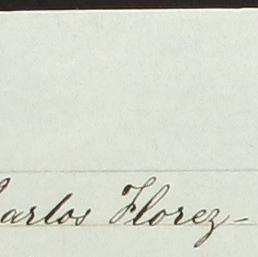 Carlos Florez-